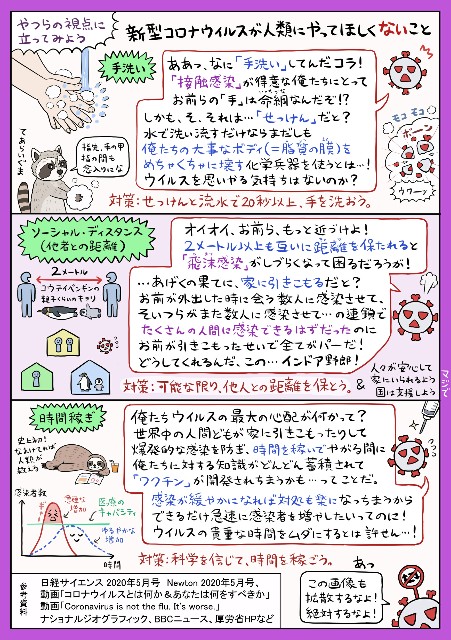 やつらの視点に
立ってみよう
新型コロナウイルスが人類にやってほしくないこと
手洗い
ああっ、なに「手洗い」してんだコラ!
「接触感染」が得意な俺たちにとって
お前らの「手」は命綱なんだぞ!?
しかも、そ、それは…「せっけん」だと?
水で洗い流すだけならまだしも
俺たちの大事なボディ(=脂質の膜)を
めちゃくちゃに壊す化学兵器を使うとは…!
ウイルスを思いやる気持ちはないのか?
てあらいぐま
指先、手の甲
指の間も
念入りにな
モコモコ
ボーン
ウワーッ
対策:せっけんと流水で20秒以上、手を洗おう。
ソーシャル・ディスタンス
(他者との距離)
2メートル
コウテイペンギンの
親子くらいのキョリ
オイオイ、お前ら、もっと近づけよ!
2メートル以上も互いに距離を保たれると
「飛沫感染」がしづらくなって困るだろうが!
…あげくの果てに、家に引きこもるだと?
お前が外出した時に会う数人に感染させて、
そいつらがまた数人に感染させて…の連鎖で
たくさんの人間に感染できるはずだったのに
お前が引きこもったせいで全てがパーだ!
どうしてくれるんだ、この…インドア野郎!
対策:可能な限り、他人との距離を保とう。
&
人々が安心して
家にいられるよう
国は支援しよう
マジで
時間稼ぎ
史上初!
なまけてれば
人類が
救えるよう
俺たちウイルスの最大の心配が何かって?
世界中の人間どもが家に引きこもったりして
爆発的な感染を防ぎ、時間を稼いでやがる間に
俺たちに対する知識がどんどん蓄積されて
「ワクチン」が開発されちまうかも…ってことだ。
感染が緩やかになれば対処も楽になっちまうから
できるだけ急速に感染者を増やしたいってのに!
ウイルスの貴重な時間をムダにするとは許せん…!
感染者数
急速な
増加
医療の
キャパシティ
ゆるやかな
増加
時間
対策:科学を信じて、時間を稼ごう。
参考資料
日経サイエンス 2020年5月号 Newton 2020年5月号、
動画「コロナウイルスとは何か&あなたは何をすべきか」
動画「Coronavirus is not the flu. It's worse.」
ナショナルジオグラフィック、BBCニュース、厚労省HPなど
あっ
この画像も
拡散するなよ!
絶対するなよ!